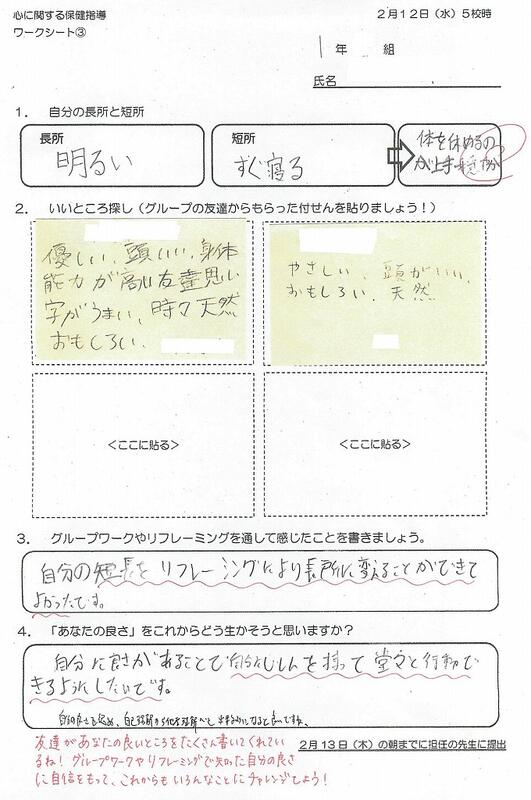 心に関する保健指導
2月12日（水）5校時
ワークシート③
1年 組
氏名
1． 自分の長所と短所
長所
明るい
短所
すぐ寝る
体を休めるの
が上手
2． いいところ探し（グループの友達からもらった付せんを貼りましょう！）
優しい、頭いい、身体
能力が高い友達思い
字がうまい、時々天然
おもしろい、
やさしい、頭がいい、
おもしろい、天然
＜ここに貼る＞
＜ここに貼る＞
3． グループワークやリフレーミングを通して感じたことを書きましょう。
自分の短長をリフレーミングにより長所に変えることができて
よかったです。
4． 「あなたの良さ」をこれからどう生かそうと思いますか？
自分に良さがあることで自分にじしんを持って堂々と行動で
きるようにしたいです。
友達があなたの良いところをたくさん書いてくれてい
るね！グループワークやリフレーミングで知った自分の良さ
に自信をもって、これからもいろんなことにチャレンジしよう！
2月13日（木）の朝までに担任の先生に提出